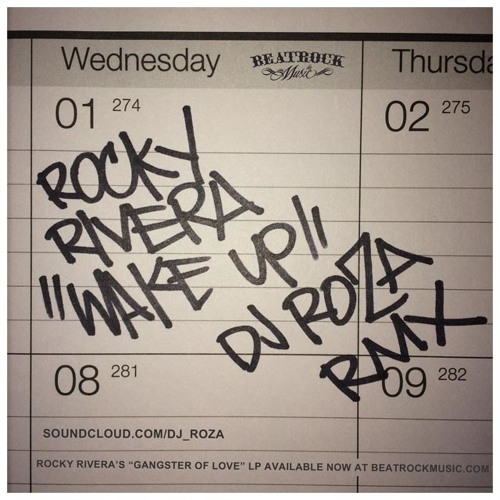 Wednesday
BEATROCK
Music
Thursda
01 274
02 275
ROCKY
RIVERA
"WAKE UP"
DJ ROZA
RMX
08 281
09 282
SOUNDCLOUD.COM/DJ_ROZA
ROCKY RIVERA'S "GANGSTER OF LOVE" LP AVAILABLE NOW AT BEATROCKMUSIC.COM